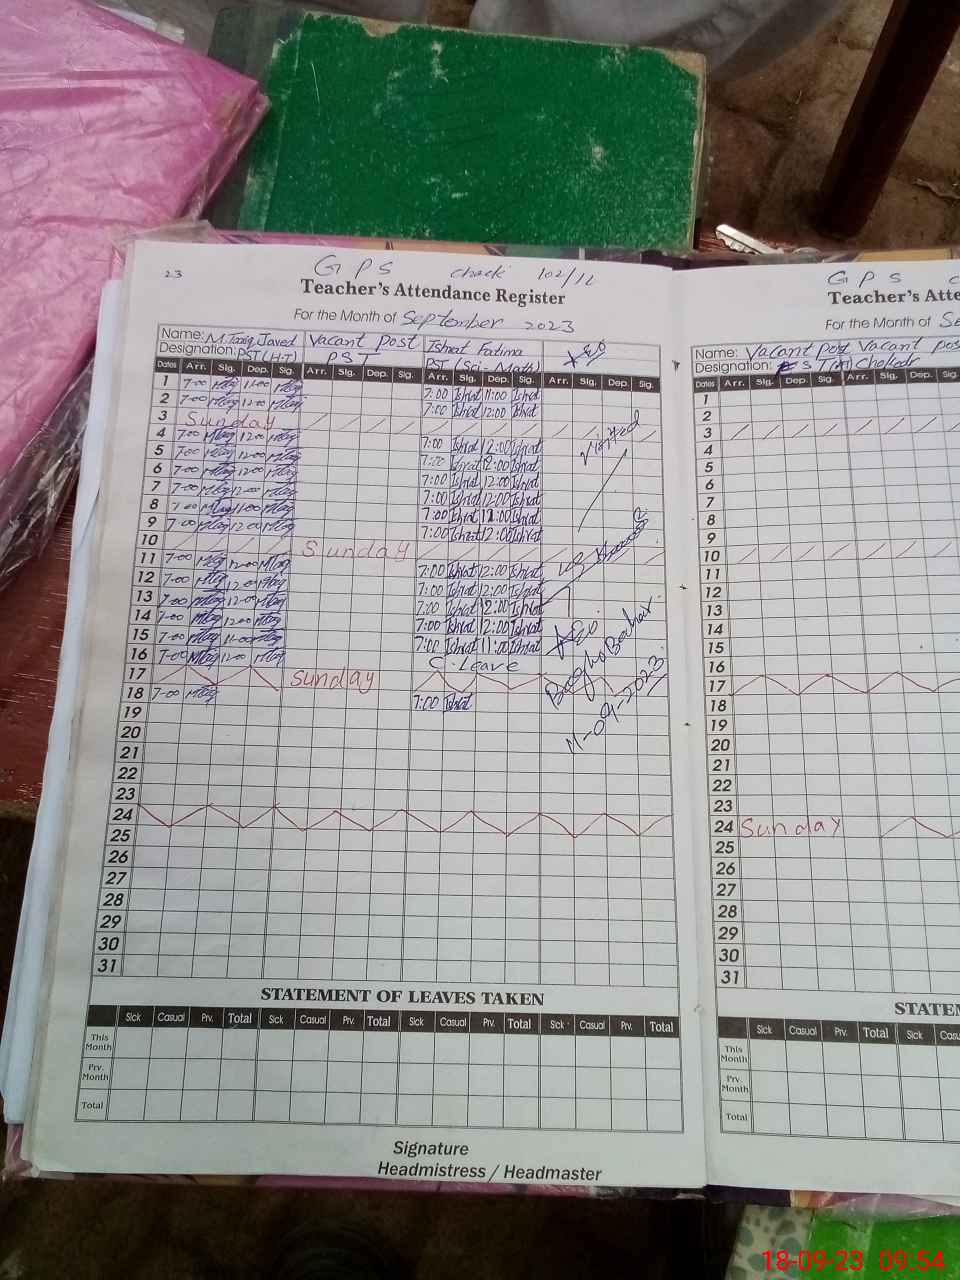 23
GPS chack 102/1L
Teacher's Attendance Register
For the Month of September 2023
Name: M. Tariq Javed Vacant Post Ishrat Fatima AEO
Designation: PST (H.T) PST PST (Sci-Math)
Dates Arr. Sig. Dep. Sig. Arr. Sig. Dep. Sig. Arr. Sig. Dep. Sig. Arr. Sig. Dep. Sig.
1 7-00 MTaq 11-00 MTaq 7:00 Ishrat 11:00 Ishrat
2 7-00 MTaq 12-00 MTaq 7:00 Ishrat 12:00 Ishrat
3 Sunday
4 7-00 MTaq 12-00 MTaq 7:00 Ishrat 12:00 Ishrat
5 7-00 MTaq 12-00 MTaq 7:00 Ishrat 12:00 Ishrat
6 7-00 MTaq 12-00 MTaq 7:00 Ishrat 12:00 Ishrat
7 7-00 MTaq 12-00 MTaq 7:00 Ishrat 12:00 Ishrat
8 7-00 MTaq 11-00 MTaq 7:00 Ishrat 12:00 Ishrat
9 7-00 MTaq 12-00 MTaq 7:00 Ishrat 12:00 Ishrat
10 Sunday
11 7-00 MTaq 12-00 MTaq 7:00 Ishrat 12:00 Ishrat
12 7-00 MTaq 12-00 MTaq 7:00 Ishrat 12:00 Ishrat
13 7-00 MTaq 12-00 MTaq 7:00 Ishrat 12:00 Ishrat
14 7-00 MTaq 12-00 MTaq 7:00 Ishrat 12:00 Ishrat
15 7-00 MTaq 11-00 MTaq 7:00 Ishrat 11:00 Ishrat
16 7-00 MTaq 12-00 MTaq C. Leave
17 Sunday
18 7-00 MTaq 7:00 Ishrat
19
20
21
22
23
24
25
26
27
28
29
30
31
Visited
AEO
11-09-2023
STATEMENT OF LEAVES TAKEN
Sick Casual Prv. Total Sick Casual Prv. Total Sick Casual Prv. Total Sick Casual Prv. Total
This Month
Prv. Month
Total
Signature
Headmistress / Headmaster
GPS
Teacher's Atte
For the Month of Se
Name: Vacant post Vacant pos
Designation:
Dates Arr. Sig. Dep. Sig. Arr. Sig. Dep. Sig.
1
2
3
4
5
6
7
8
9
10
11
12
13
14
15
16
17
18
19
20
21
22
23
24 Sunday
25
26
27
28
29
30
31
STATEM
Sick Casual Prv. Total Sick Cas
This Month
Prv. Month
Total
18-09-23 09:54